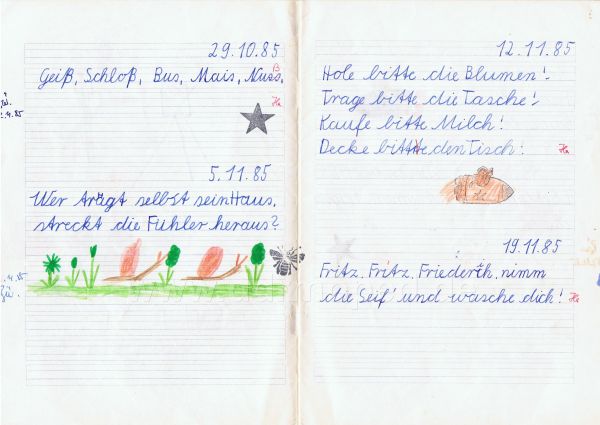 29.10.85
Geiß, Schloß, Bus, Mais, Nuss.
ß
Ha
.4.85
5.11.85
Wer trägt selbst sein Haus,
streckt die Fühler heraus?
.4.85
12.11.85
Hole bitte die Blumen!
Trage bitte die Tasche!
Kaufe bitte Milch!
Decke bitte den Tisch!
Ha
19.11.85
Fritz, Fritz, Friederich, nimm
die Seif' und wasche dich!
Ha